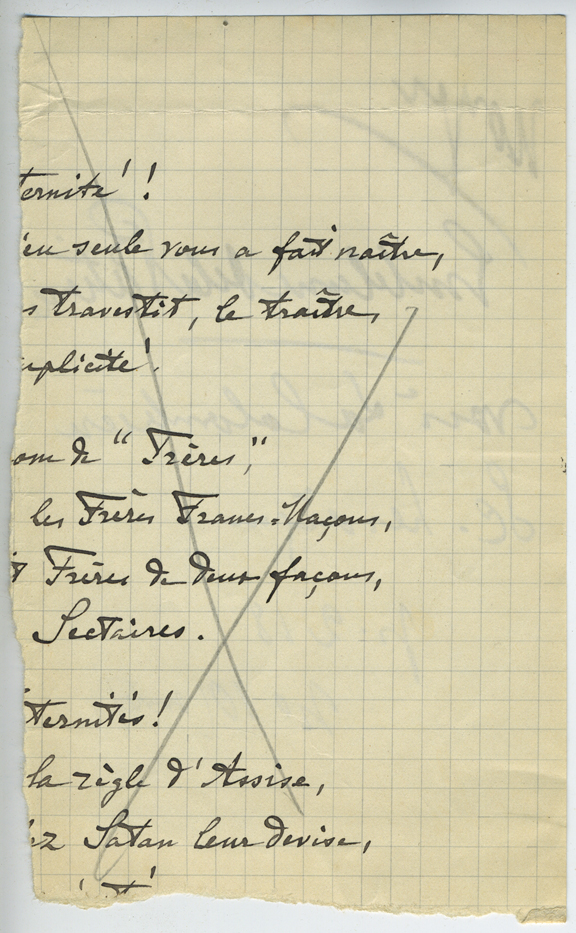 ternité !
eu seule vous a fait naître,
s travestit, le traître,
uplicité.
om de " Frères,"
les Frères Francs-Maçons,
t Frères de deux façons,
Sectaires.
ternités !
la règle d'Assise,
ez Satan leur devise,